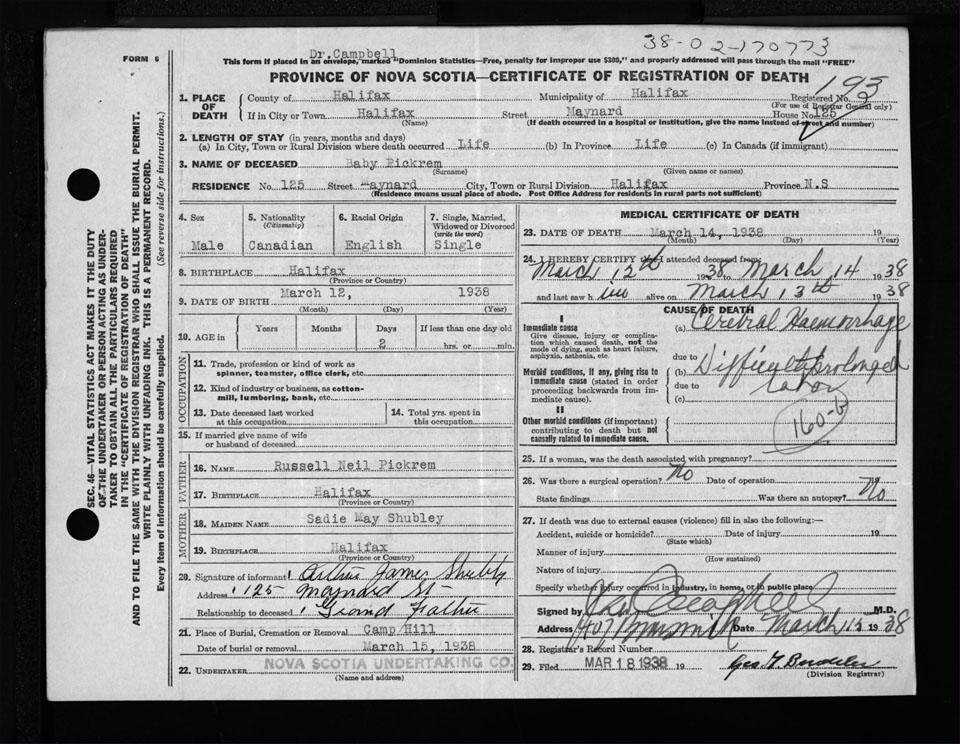 38-02-170773
Dr. Campbell
FORM 6
This form if placed in an envelope, marked "Dominion Statistics—Free, penalty for improper use $300," and properly addressed will pass through the mail "FREE"
PROVINCE OF NOVA SCOTIA—CERTIFICATE OF REGISTRATION OF DEATH
193
1. PLACE OF DEATH
County of Halifax Municipality of Halifax Registered No.
(For use of Registrar General only)
If in City or Town Halifax Street Maynard House No. 125
(Name) (If death occurred in a hospital or institution, give the name instead of street and number)
2. LENGTH OF STAY (in years, months and days)
(a) In City, Town or Rural Division where death occurred Life (b) In Province Life (c) In Canada (if immigrant)
3. NAME OF DECEASED Baby Pickrem
(Surname) (Given name or names)
RESIDENCE No. 125 Street Maynard City, Town or Rural Division Halifax Province N.S
(Residence means usual place of abode. Post Office Address for residents in rural parts not sufficient)
4. Sex
Male
5. Nationality
(Citizenship)
Canadian
6. Racial Origin
English
7. Single, Married, Widowed or Divorced
(write the word)
Single
8. BIRTHPLACE Halifax
(Province or Country)
9. DATE OF BIRTH March 12, 1938
(Month) (Day) (Year)
10. AGE in
Years Months Days If less than one day old
2 hrs. or min.
OCCUPATION
11. Trade, profession or kind of work as
spinner, teamster, office clerk, etc.
12. Kind of industry or business, as cotton-
mill, lumbering, bank, etc.
13. Date deceased last worked
at this occupation
14. Total yrs. spent in
this occupation
15. If married give name of wife
or husband of deceased
FATHER
16. NAME Russell Neil Pickrem
17. BIRTHPLACE Halifax
(Province or Country)
MOTHER
18. MAIDEN NAME Sadie May Shubley
19. BIRTHPLACE Halifax
(Province or Country)
20. Signature of informant Arthur James Shubly
Address 125 Maynard St
Relationship to deceased Grand Father
21. Place of Burial, Cremation or Removal Camp Hill
Date of burial or removal March 15, 1938
22. UNDERTAKER NOVA SCOTIA UNDERTAKING CO.
(Name and address)
MEDICAL CERTIFICATE OF DEATH
23. DATE OF DEATH March 14, 1938 19
(Month) (Day) (Year)
24. I HEREBY CERTIFY that I attended deceased from:
March 12th 1938 to March 14 1938
and last saw h im alive on March 13th 1938
CAUSE OF DEATH
I
Immediate cause
Give disease, injury or complica-
tion which caused death, not the
mode of dying, such as heart failure,
asphyxia, asthenia, etc.
(a) Cerebral Haemorrhage
due to
Morbid conditions, if any, giving rise to
immediate cause (stated in order
proceeding backwards from im-
mediate cause).
(b) Difficult & prolonged
due to labor
(c)
160-b
II
Other morbid conditions (if important)
contributing to death but not
causally related to immediate cause.
25. If a woman, was the death associated with pregnancy?
26. Was there a surgical operation? No Date of operation
State findings Was there an autopsy? No
27. If death was due to external causes (violence) fill in also the following:—
Accident, suicide or homicide? Date of injury 19
(State which)
Manner of injury
(How sustained)
Nature of injury
Specify whether injury occurred in industry, in home, or in public place
Signed by Campbell M.D.
Address 407 Date March 15 1938
28. Registrar's Record Number
29. Filed MAR 18 1938 19
(Division Registrar)
SEC. 46—VITAL STATISTICS ACT MAKES IT THE DUTY
OF THE UNDERTAKER OR PERSON ACTING AS UNDER-
TAKER TO OBTAIN ALL THE PARTICULARS REQUIRED
IN THE "CERTIFICATE OF REGISTRATION OF DEATH"
AND TO FILE THE SAME WITH THE DIVISION REGISTRAR WHO SHALL ISSUE THE BURIAL PERMIT.
WRITE PLAINLY WITH UNFADING INK. THIS IS A PERMANENT RECORD.
Every item of information should be carefully supplied. (See reverse side for instructions.)